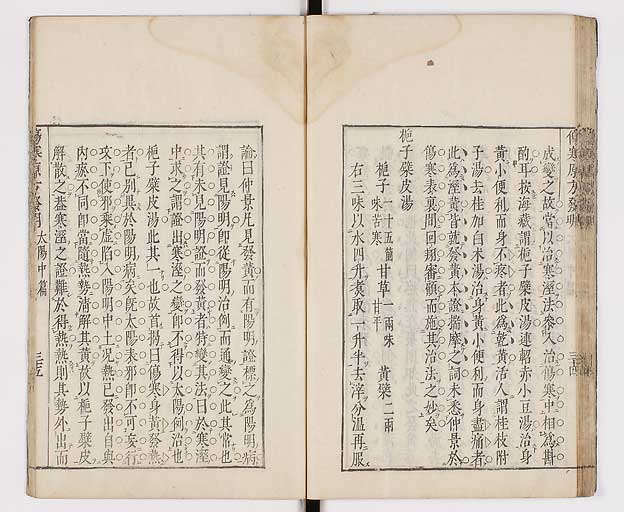 傷寒原方發明
三十四
成變之故當以治寒溼法參入治傷寒中相為斟
酌耳按海藏謂梔子檗皮湯連軺赤小豆湯治身
黃小便利而身不疼者此為乾黃活人謂桂枝附
子湯去桂加白朮湯治身黃小便利而身盡痛者
此為溼黃皆就發黃本證揣摩之詞未悉仲景於
傷寒表裏問回翔審顧而施其治法之妙矣
梔子檗皮湯
梔子一十五箇味苦寒 甘草一兩味甘平 黃檗二兩
右三味以水四升煑取一升半去滓分溫再服
論曰仲景凡見發黃而有陽明證標之為陽明病
謂證見陽明卽從陽明治例而通變之此其常也
其有未見陽明證而發黃者特變其法曰於寒溼
中求之謂證出寒溼之變卽不得以太陽例治也
梔子檗皮湯此其一也故首揭曰傷寒身黃發熱
者已別異於陽明病矣旣太陽表邪卽不可妄行
攻下使邪乘虛陷入陽明中土況熱已發出自與
內瘀不同卽當隨熱勢清解其黃故以梔子檗皮
解散之葢寒溼之證難於得熱熱則其勢外出而
傷寒原方發明
太陽中篇
三十五